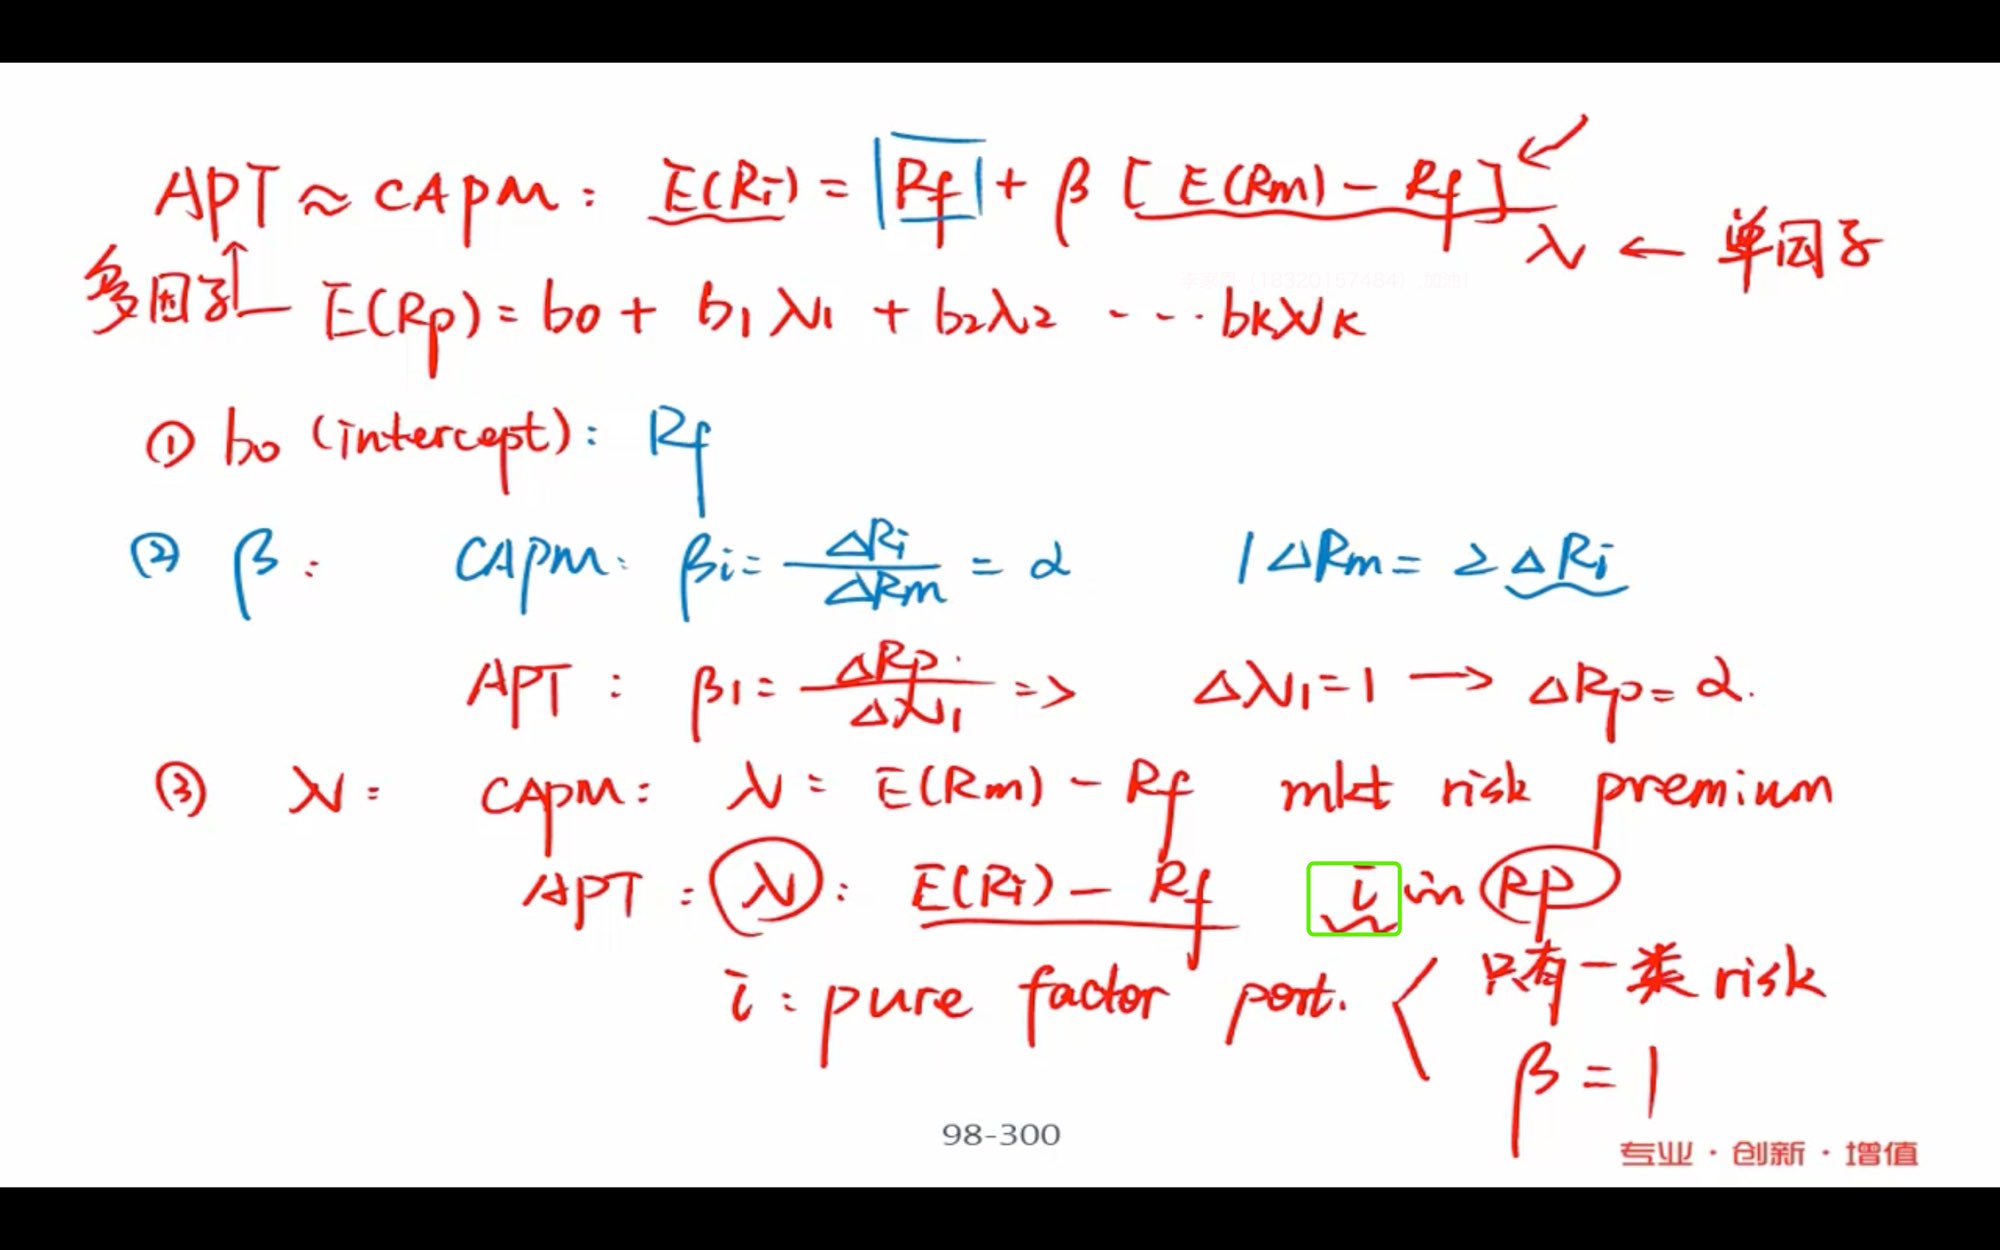 APT ≈ CAPM: E(Ri) = Rf + β [E(Rm) - Rf]
λ ← 单因子
多因子 E(Rp) = b0 + b1λ1 + b2λ2 ---· bKλK
① b0 (intercept): Rf
② β: CAPM: βi = ΔRi/ΔRm = 2 1ΔRm = 2ΔRi
APT: β1 = ΔRp/Δλ1 => Δλ1=1 → ΔRp = 2.
③ λ: CAPM: λ = E(Rm) - Rf mkt risk premium
APT: λ: E(Ri) - Rf i in Rp
i: pure factor port. 只有一类 risk
β = 1
98-300
专业·创新·增值